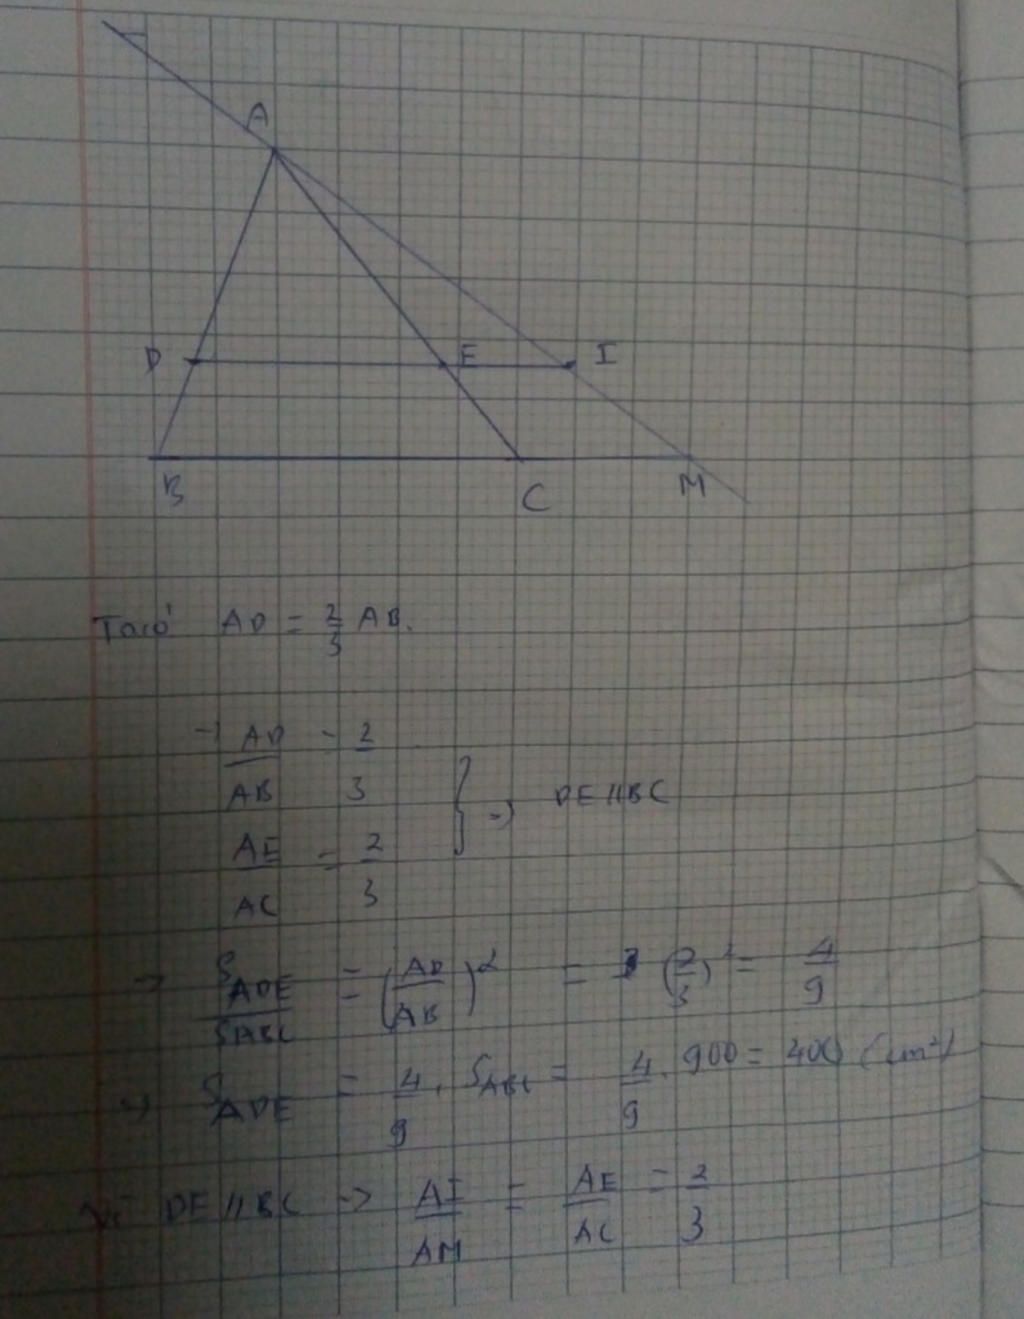 A
D E I
B C M
Ta có AD = 2/3 AB.
→ AD/AB = 2/3
AE/AC = 2/3 } → DE // BC
→ S_ADE/S_ABC = (AD/AB)² = (2/3)² = 4/9
→ S_ADE = 4/9 . S_ABC = 4/9 . 900 = 400 (cm²)
Vì DE // BC → AI/AM = AE/AC = 2/3